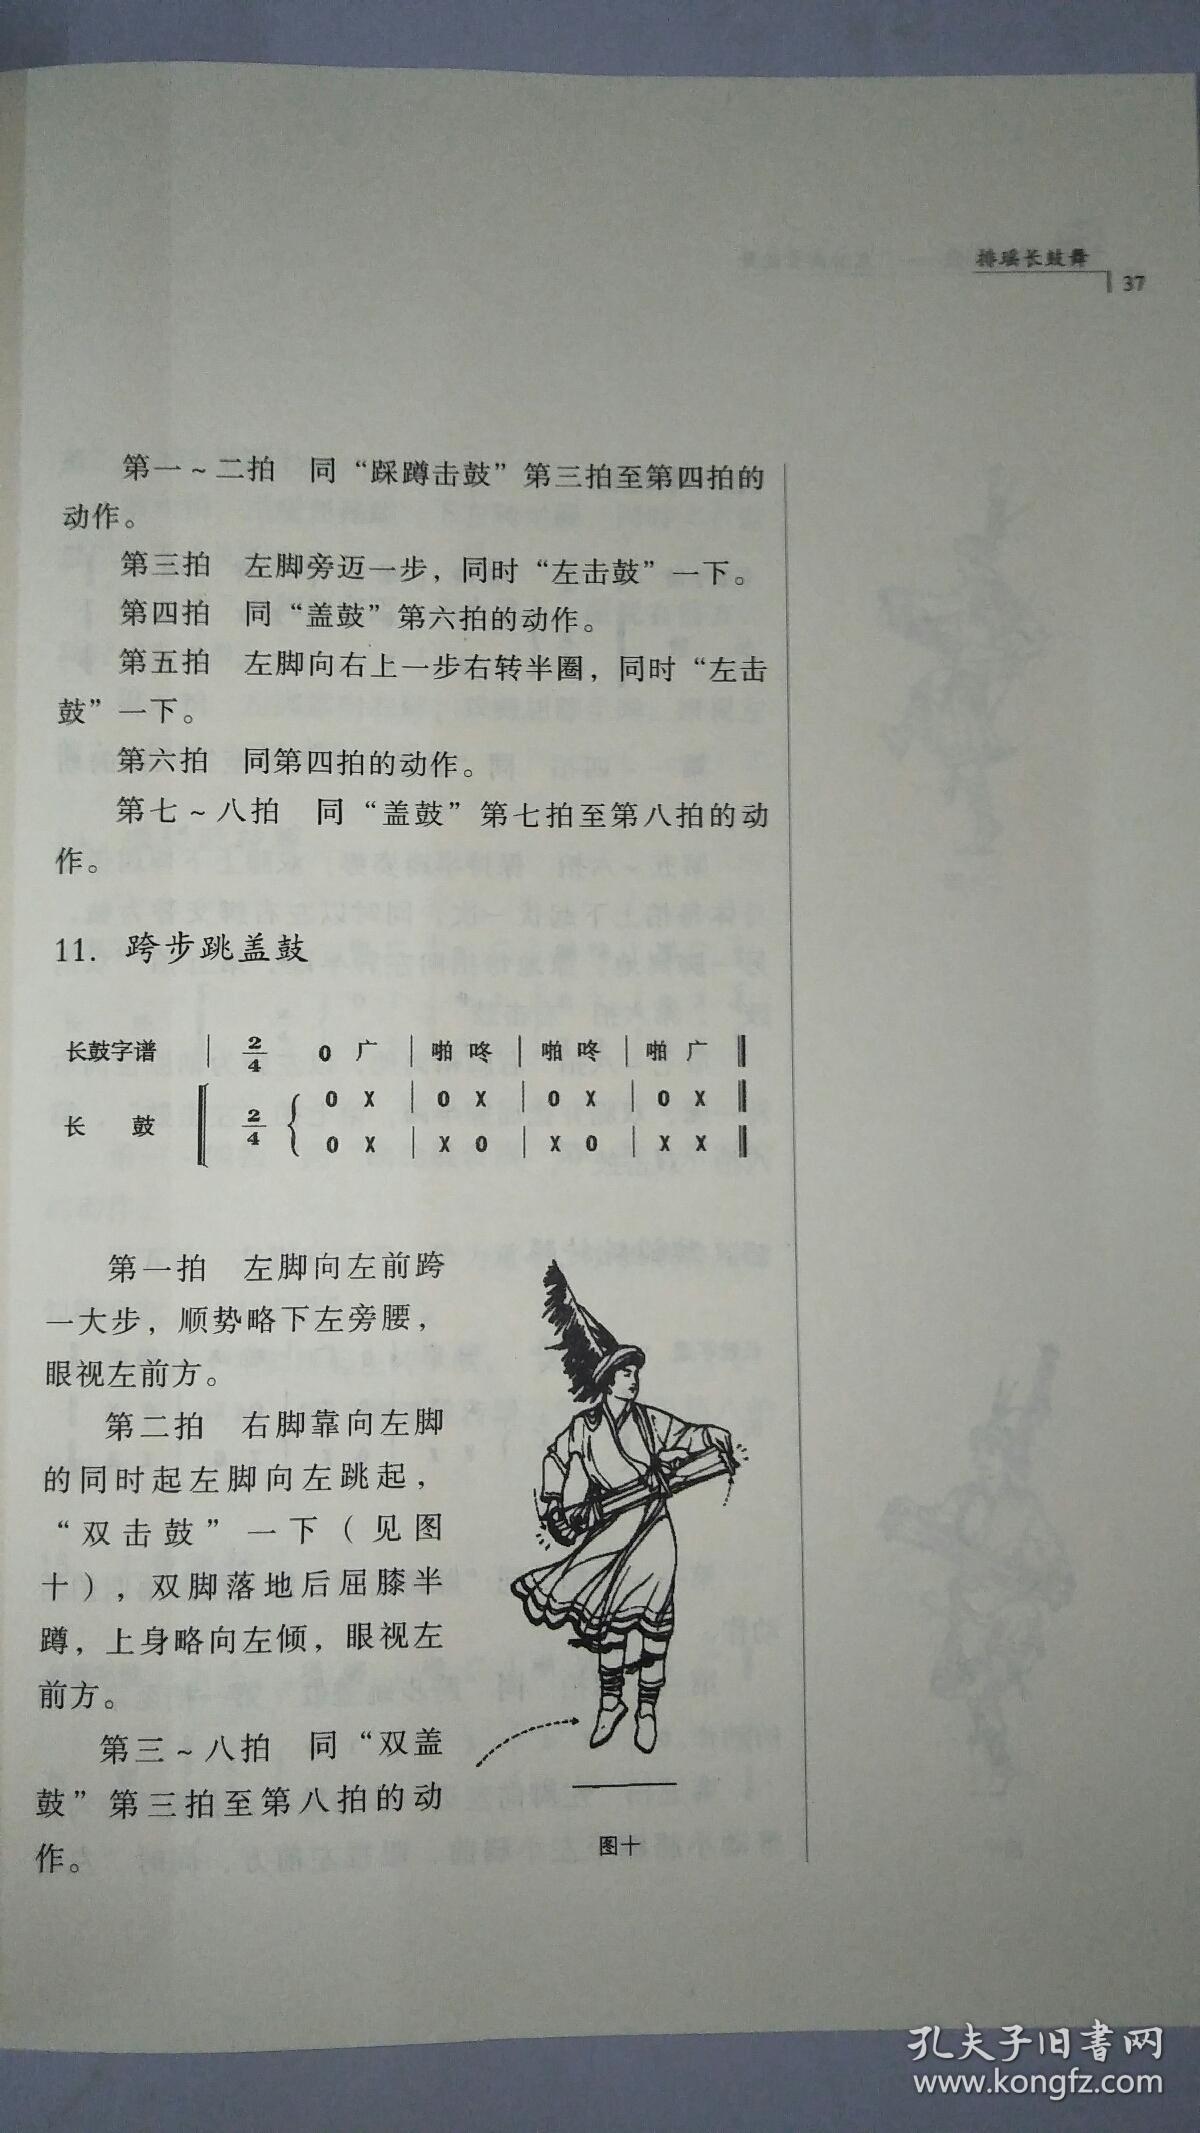 排瑶长鼓舞
37
第一～二拍　同“踩蹲击鼓”第三拍至第四拍的
动作。
第三拍　左脚旁迈一步，同时“左击鼓”一下。
第四拍　同“盖鼓”第六拍的动作。
第五拍　左脚向右上一步右转半圈，同时“左击
鼓”一下。
第六拍　同第四拍的动作。
第七～八拍　同“盖鼓”第七拍至第八拍的动
作。
11. 跨步跳盖鼓
长鼓字谱 | 2/4 0 广 | 啪 咚 | 啪 咚 | 啪 广 ‖
长　鼓 2/4 0 X | 0 X | 0 X | 0 X ‖
0 X | X 0 | X 0 | X X ‖
第一拍　左脚向左前跨
一大步，顺势略下左旁腰，
眼视左前方。
第二拍　右脚靠向左脚
的同时起左脚向左跳起，
“双击鼓”一下（见图
十），双脚落地后屈膝半
蹲，上身略向左倾，眼视左
前方。
第三～八拍　同“双盖
鼓”第三拍至第八拍的动
作。
图十
孔夫子旧书网
www.kongfz.com